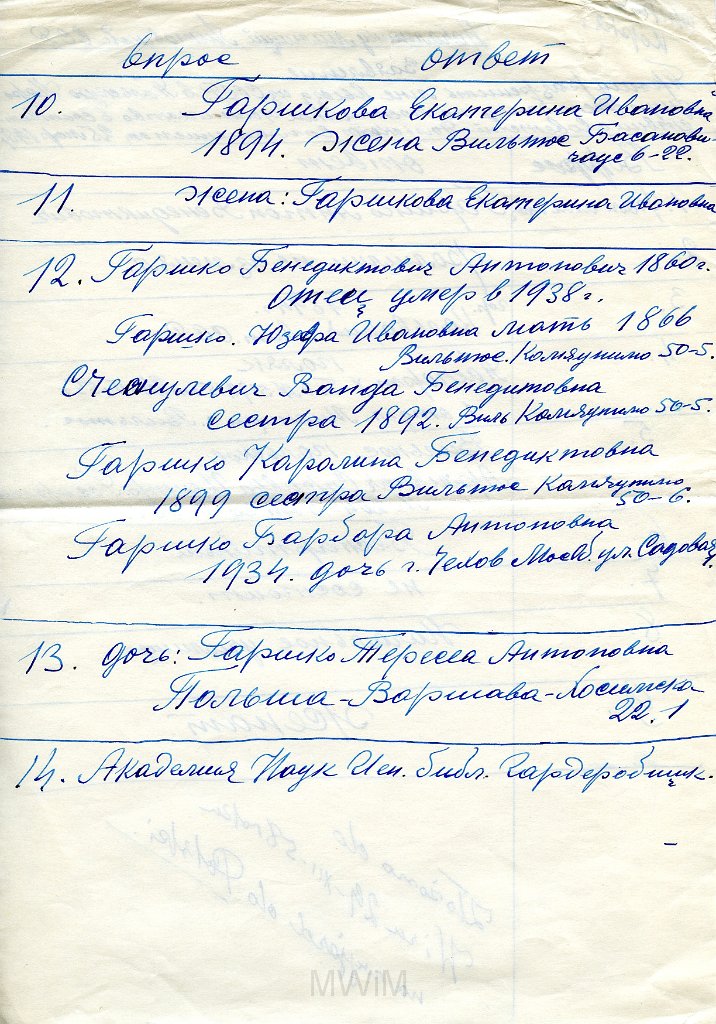 вопрос ответ
10. Гаршкова Екатерина Ивановна
1894. жена Вильнюс Басанови-
чаус 6-22.
11. жена: Гаршкова Екатерина Ивановна
12. Гаршко Бенедиктович Антонович 1860 г.
отец умер в 1938 г.
Гаршко. Юзефа Ивановна мать 1866
Вильнюс. 50-5.
Ванда Бенедитовна
сестра 1892. Виль 50-5.
Гаршко Каролина Бенедиктовна
1899 сестра Вильнюс
50-6.
Гаршко Барбора Антоновна
1934. дочь г. Чехов Моск. ул. Садовая
7.
13. дочь: Гаршко Тереса Антоновна
Польша-Варшава-
22.1
14. Академия Наук библ. Гардеробщик.
MWiM